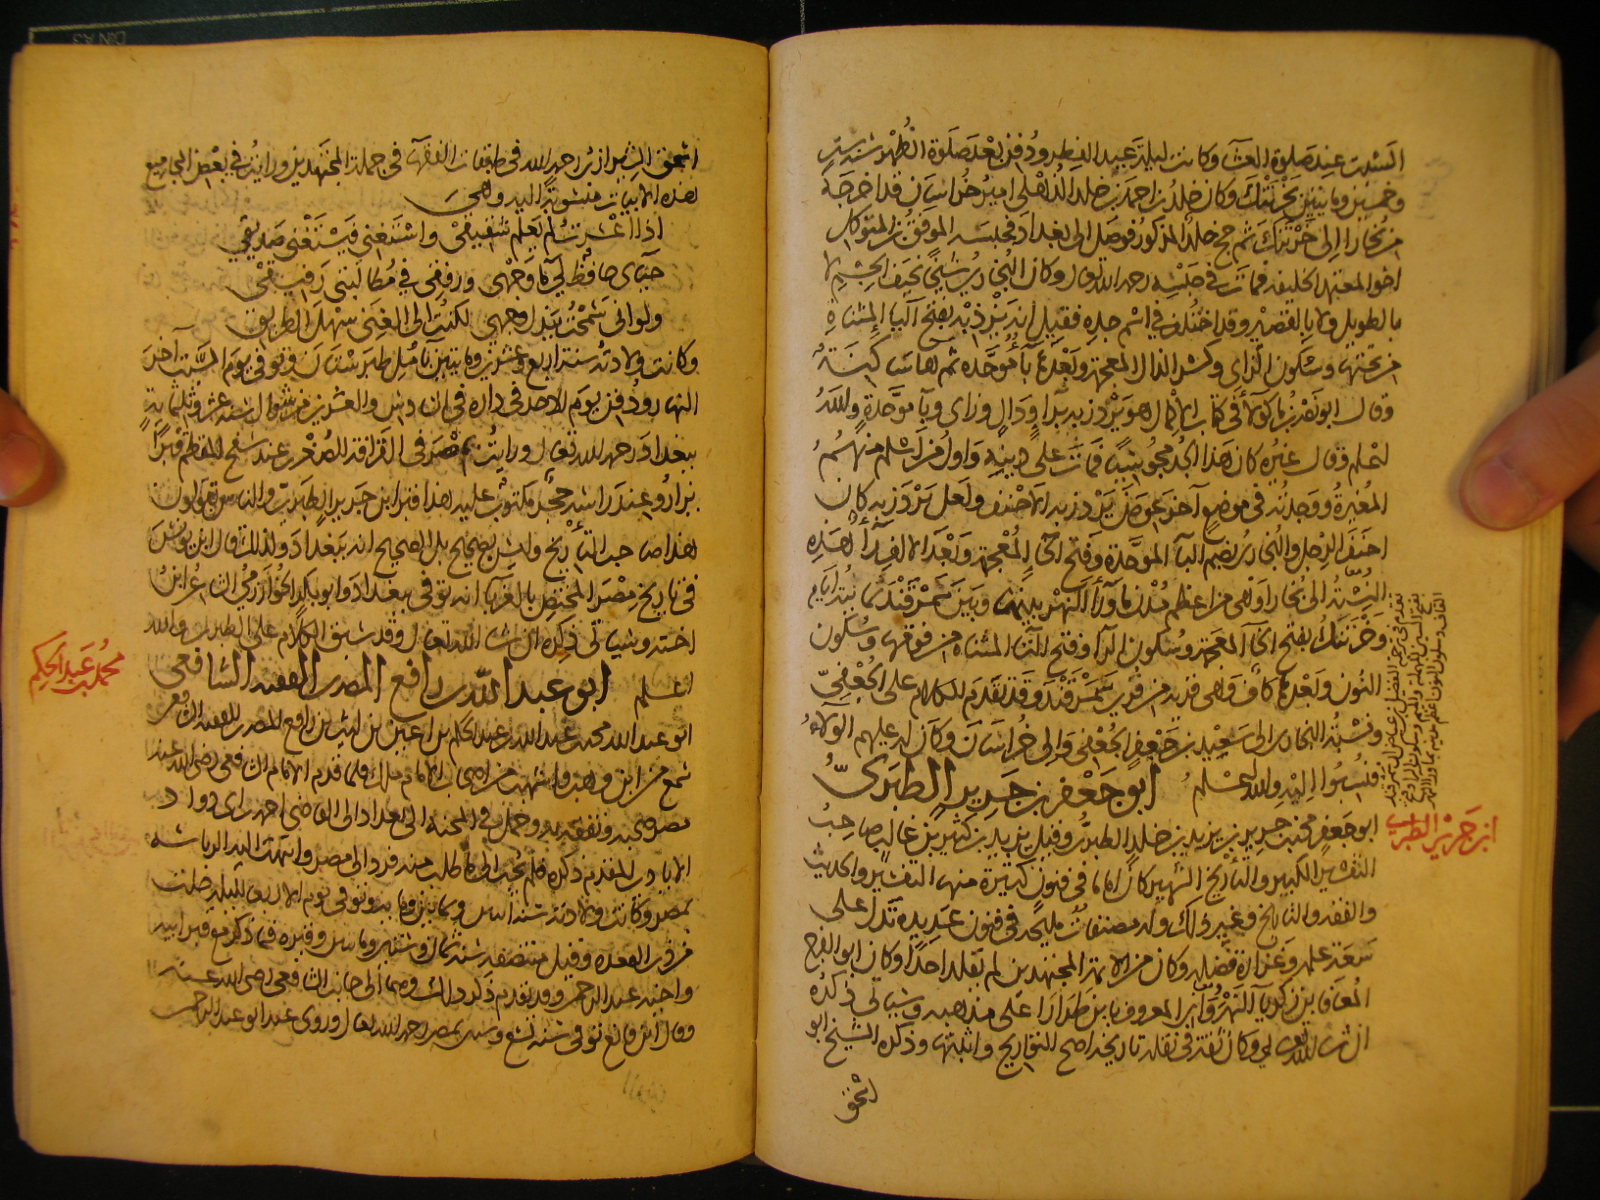 السبت عند صلوة العشآ وكانت ليلة عيد الفطر ودفن بعد صلوة الظهر سنة ست
وخمسين ومايتين بخرتنك وكان خلد بن احمد بن خلد الذهلى امير خراسان قد اخرجه
من بخارا الى خرتنك ثم حج خلد المذكور فوصل الى بغداد فحبسه الموفق بن المتوكل
اخو المعتمد الخليفه فمات فى حبسه رحمه الله تعالى وكان البخارى شيخا نحيف الجسم لا
بالطويل ولا بالقصير وقد اختلف فى اسم جده فقيل انه يزذبه بفتح اليآ المثناه
من تحتها وسكون الزاى وكسر الذال المعجمة وبعدها بآ موحده ثم هآ ساكنة
وقال ابو نصر بن ماكولا فى كتاب الاكمال هو يزدزبه بدال وزاى وبآ موحدة والله
اعلم وقال غيره كان هذا الجد مجوسيا فمات على دينه واول من اسلم منهم
المغيرة ووجدته فى موضع آخر عوض يزدزبه الاحنف ولعل يزدزبه كان
احنف الرجل والبخارى بضم البآ الموحدة وفتح الخآ المعجمة وبعد الالف رآ هذه
النسبة الى بخارا وهى من اعظم مدن ماورآ النهر بينها وبين سمرقند ثمانية ايام
وخرتنك بفتح الخآ المعجمة وسكون الرآ وفتح التآ المثناه من فوقها وسكون
النون وبعدها كاف وهى قرية من قرى سمرقند وقد تقدم الكلام على الجعفى
ونسبة البخارى الى سعيد بن جعفر الجعفى والى خراسان وكان له عليهم الولاء
فنسبوا اليه والله اعلم ابو جعفر بن جرير الطبرى
ابن جرير الطبرى
ابو جعفر محمد بن جرير بن يزيد بن خلد الطبرى وقيل يزيد بن كثير بن غالب صاحب
التفسير الكبير والتأريخ الشهير كان اماما فى فنون كثيرة منها التفسير والحديث
والفقه والتاريخ وغير ذلك وله مصنفات مليحه فى فنون عديده تدل على
سعة علمه وغزارة فضله وكان من الايمة المجتهدين لم يقلد احدا وكان ابو الفرج
المعافا بن زكريا النهروانى المعروف بابن طرارا على مذهبه وسياتى ذكره
ان شآ الله تعالى وكان ثقة فى نقله تاريخه اصح التواريخ واثبتها وذكره الشيخ ابو
اسحق
اسحق الشيرازى رحمه الله فى طبقات الفقهآ فى جملة المجتهدين ورايت فى بعض المجاميع
هذه الابيات منسوبة اليه وهى
اذا اعسرت لم يعلم شقيقى واستغنى فيستغنى صديقى
حيآى حافظ لى مآ وجهى ورفقى فى مطالبتى رفيقى
ولو انى سمحت ببذل وجهى لكنت الى الغنى سهل الطريق
وكانت ولادته سنة اربع وعشرين ومايتين بآمل طبرستان وتوفى يوم السبت آخر
النهار ودفن يوم الاحد فى داره فى السادس والعشرين من شوال سنة عشر وثلثماية
ببغداد رحمه الله تعالى ورايت بمصر فى القرافة الصغرى عند سفح المقطم قبرا
يزار وعند راسه حجر مكتوب عليه هذا قبر ابن جرير الطبرى والناس يقولون
هذا صاحب التأريخ وليس بصحيح بل الصحيح انه ببغداد ولذلك قال ابن يونس
فى تاريخ مصر المختص بالغربا انه توفى ببغداد وابو بكر الخوارزمى الشاعر ابن
اخته وسياتى ذكره ان شآ الله تعالى وقد سبق الكلام على الطبرى والله
اعلم ابو عبد الله بن رافع المصرى الفقيه الشافعى
محمد بن عبد الحكم
ابو عبد الله محمد بن عبد الله بن عبد الحكم بن اعين بن ليث بن رافع المصرى الفقيه الشافعى
سمع من ابن وهب واشهب من اصحاب الامام ملك فلما قدم الامام الشافعى رضى الله عنه
مصر صحبه وتفقه به وحمل فى المحنة الى بغداد الى القاضى احمد بن ابى دواد
الايادى المقدم ذكره فلم يجب الى ما طلب منه فرد الى مصر وانتهت اليه الرياسه
بمصر وكانت ولادته سنة اثنتين وثمانين ومايه وتوفى يوم الاربعا لليله خلت
من ذى القعده وقيل منتصفه سنة ثمان وستين ومايتين وقبره فيما ذكر مع قبر ابيه
واخيه عبد الرحمن وقد تقدم ذكر ذلك وهما الى جانب الشافعى رضى الله عنه
وقال ابن قانع توفى سنة تسع وستين بمصر رحمه الله تعالى وروى عنه ابو عبد الرحمن